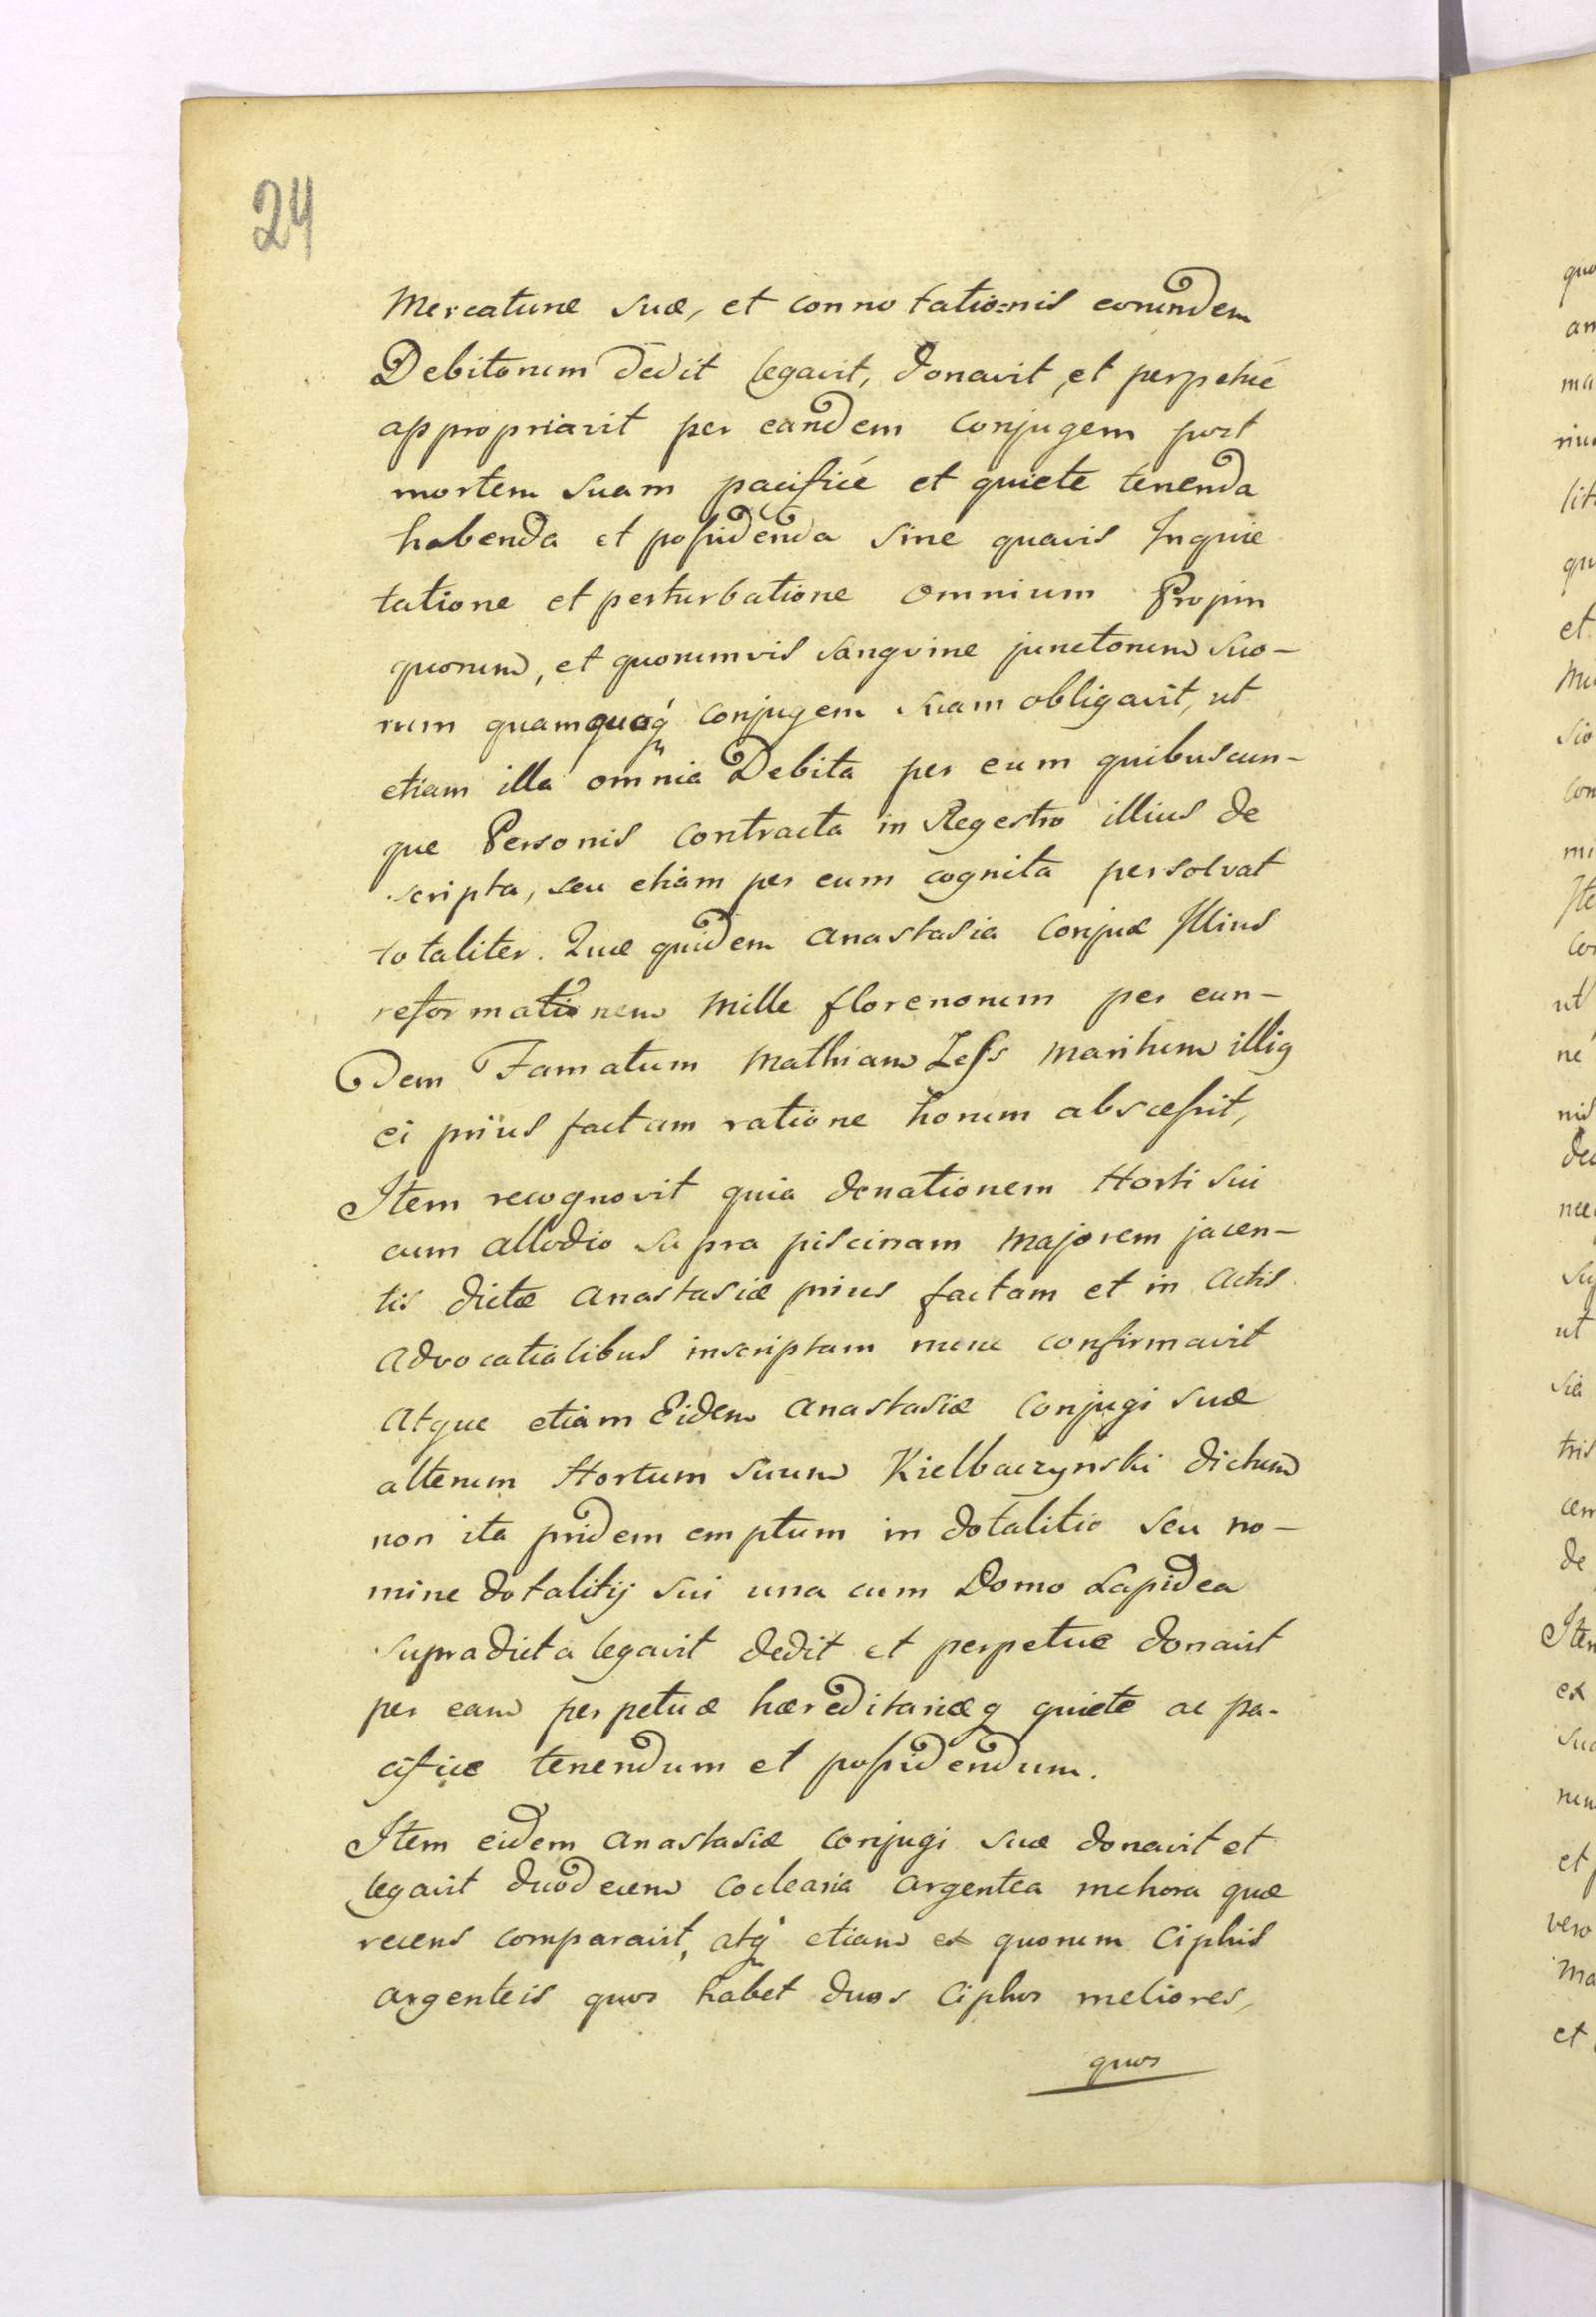 24
Mercaturæ suæ, et connotatio=nis eorundem
Debitorum dedit legavit, donavit, et perpetué
appropriavit per eandem conjugem post
mortem suam pacificé et quiete tenenda
habenda et possidenda sine quavis Inquie
tatione et perturbatione omnium Propin
quorum, et quorumvis sangvine junctorum suo-
rum quamquaq́ conjugem suam obligavit, ut
etiam illa omnia Debita per eum quibuscun-
que Personis contracta in Regestro illius de
scripta, seu etiam per eum cognita persolvat
totaliter. Quæ quidem Anastasia conjux Illius
reformationem mille florenorum per eun-
dem Famatum Mathiam Less maritum illig
ei priús factam ratione horum abscessit,
Item recognovit quia donationem Horti sui
cum allodio supra piscinam majorem jacen-
tis dictæ Anastasiæ prius factam et in Actis
Advocatialibus inscriptam nunc confirmavit
Atque etiam Eidem Anastasiæ conjugi suæ
alterum Hortum suum Kielbaczynski dictum
non ita pridem emptum in dotalitio seu no-
mine dotalitij sui una cum Domo Lapidea
supradicta legavit dedit et perpetuæ donavit
per eam perpetuæ hæreditariæq quiete ac pa-
cificæ tenendum et possidendum.
Item eidem Anastasiæ conjugi suæ donavit et
legavit duodecem coclearia argentea meliora quæ
recens comparavit, atq́ etiam ex quorum Ciphis
argenteis quos habet duos Ciphos meliores,
quos